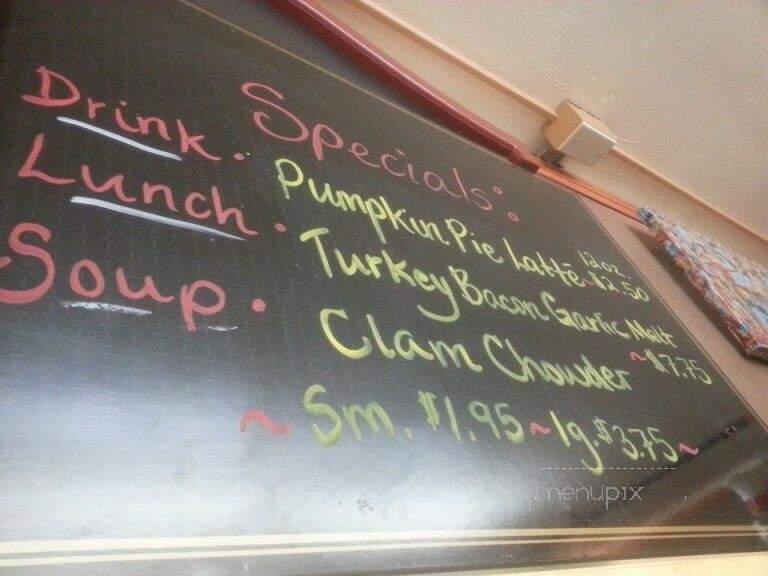 Specials:
Drink. Pumpkin Pie Latte 12oz. ~$2.50
Lunch. Turkey Bacon Garlic Melt ~$7.75
Soup. Clam Chowder
~ Sm. $1.95 ~ lg. $3.75 ~
menupix